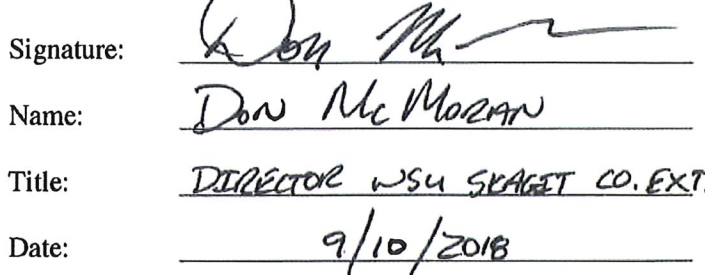 Signature: Don Mc
Name: Don McMoran
Title: DIRECTOR WSU SKAGIT CO. EXT.
Date: 9/10/2018